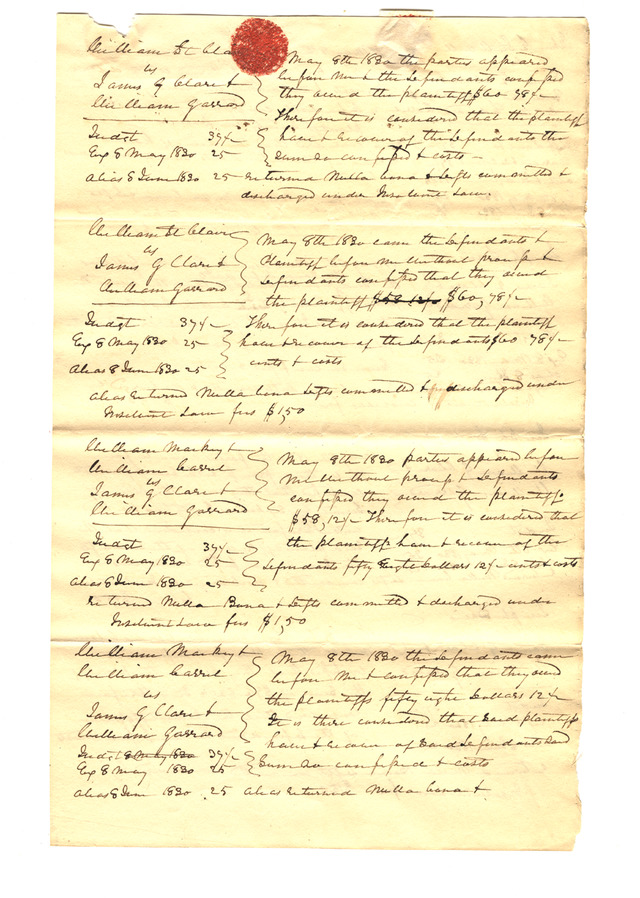 William St Clair
vs
James G Clare &
William Garrard
May 8th 1830 the parties appeared
before me & the defendants confessed
they owed the plaintiff $60 78/-
Therefore it is considered that the plaintiff
have & recover of the defendants the
sum so confessed & costs -
Judgt 37½
Exe 8 May 1830 25
Alias 8 June 1830 25 returned Nulla bona & defts committed &
discharged under Insolvent Law.
William St Clair
vs
James G Clare &
William Garrard
May 8th 1830 came the defendants &
Plaintiff before me without process &
defendants confessed that they owed
the plaintiff $58 12/- $60, 78/-
Judgt 37½ Therefore it is considered that the plaintiff
Exe 8 May 1830 25 have & recover of the defendants $60 78/-
Alias 8 June 1830 25 cents & costs
alias returned Nulla bona defts committed & discharged under
Insolvent Law fees $1,50
William Markey &
William Carrel
vs
James G Clare &
William Garrard
May 8th 1830 parties appeared before
me without process & defendants
confessed they owed the plaintiffs
$58, 12/- Therefore it is considered that
the plaintiffs have & recover of the
defendants fifty Eight Dollars 12/- cents & costs
Judgt 37½
Exe 8 May 1830 25
Alias 8 June 1830 25
returned Nulla Bona & defts committed & discharged under
Insolvent Law fees $1,50
William Markey &
William Carrel
vs
James G Clare &
William Garrard
May 8th 1830 the defendants came
before me & confessed that they owed
the plaintiffs fifty eight Dollars 12/-
It is there considered that said plaintiffs
have & recover of said defendants said
sum so confessed & costs
Judgt 8 May 1830 37½
Exe 8 May 1830 25
Alias 8 June 1830 25 alias returned Nulla bona &